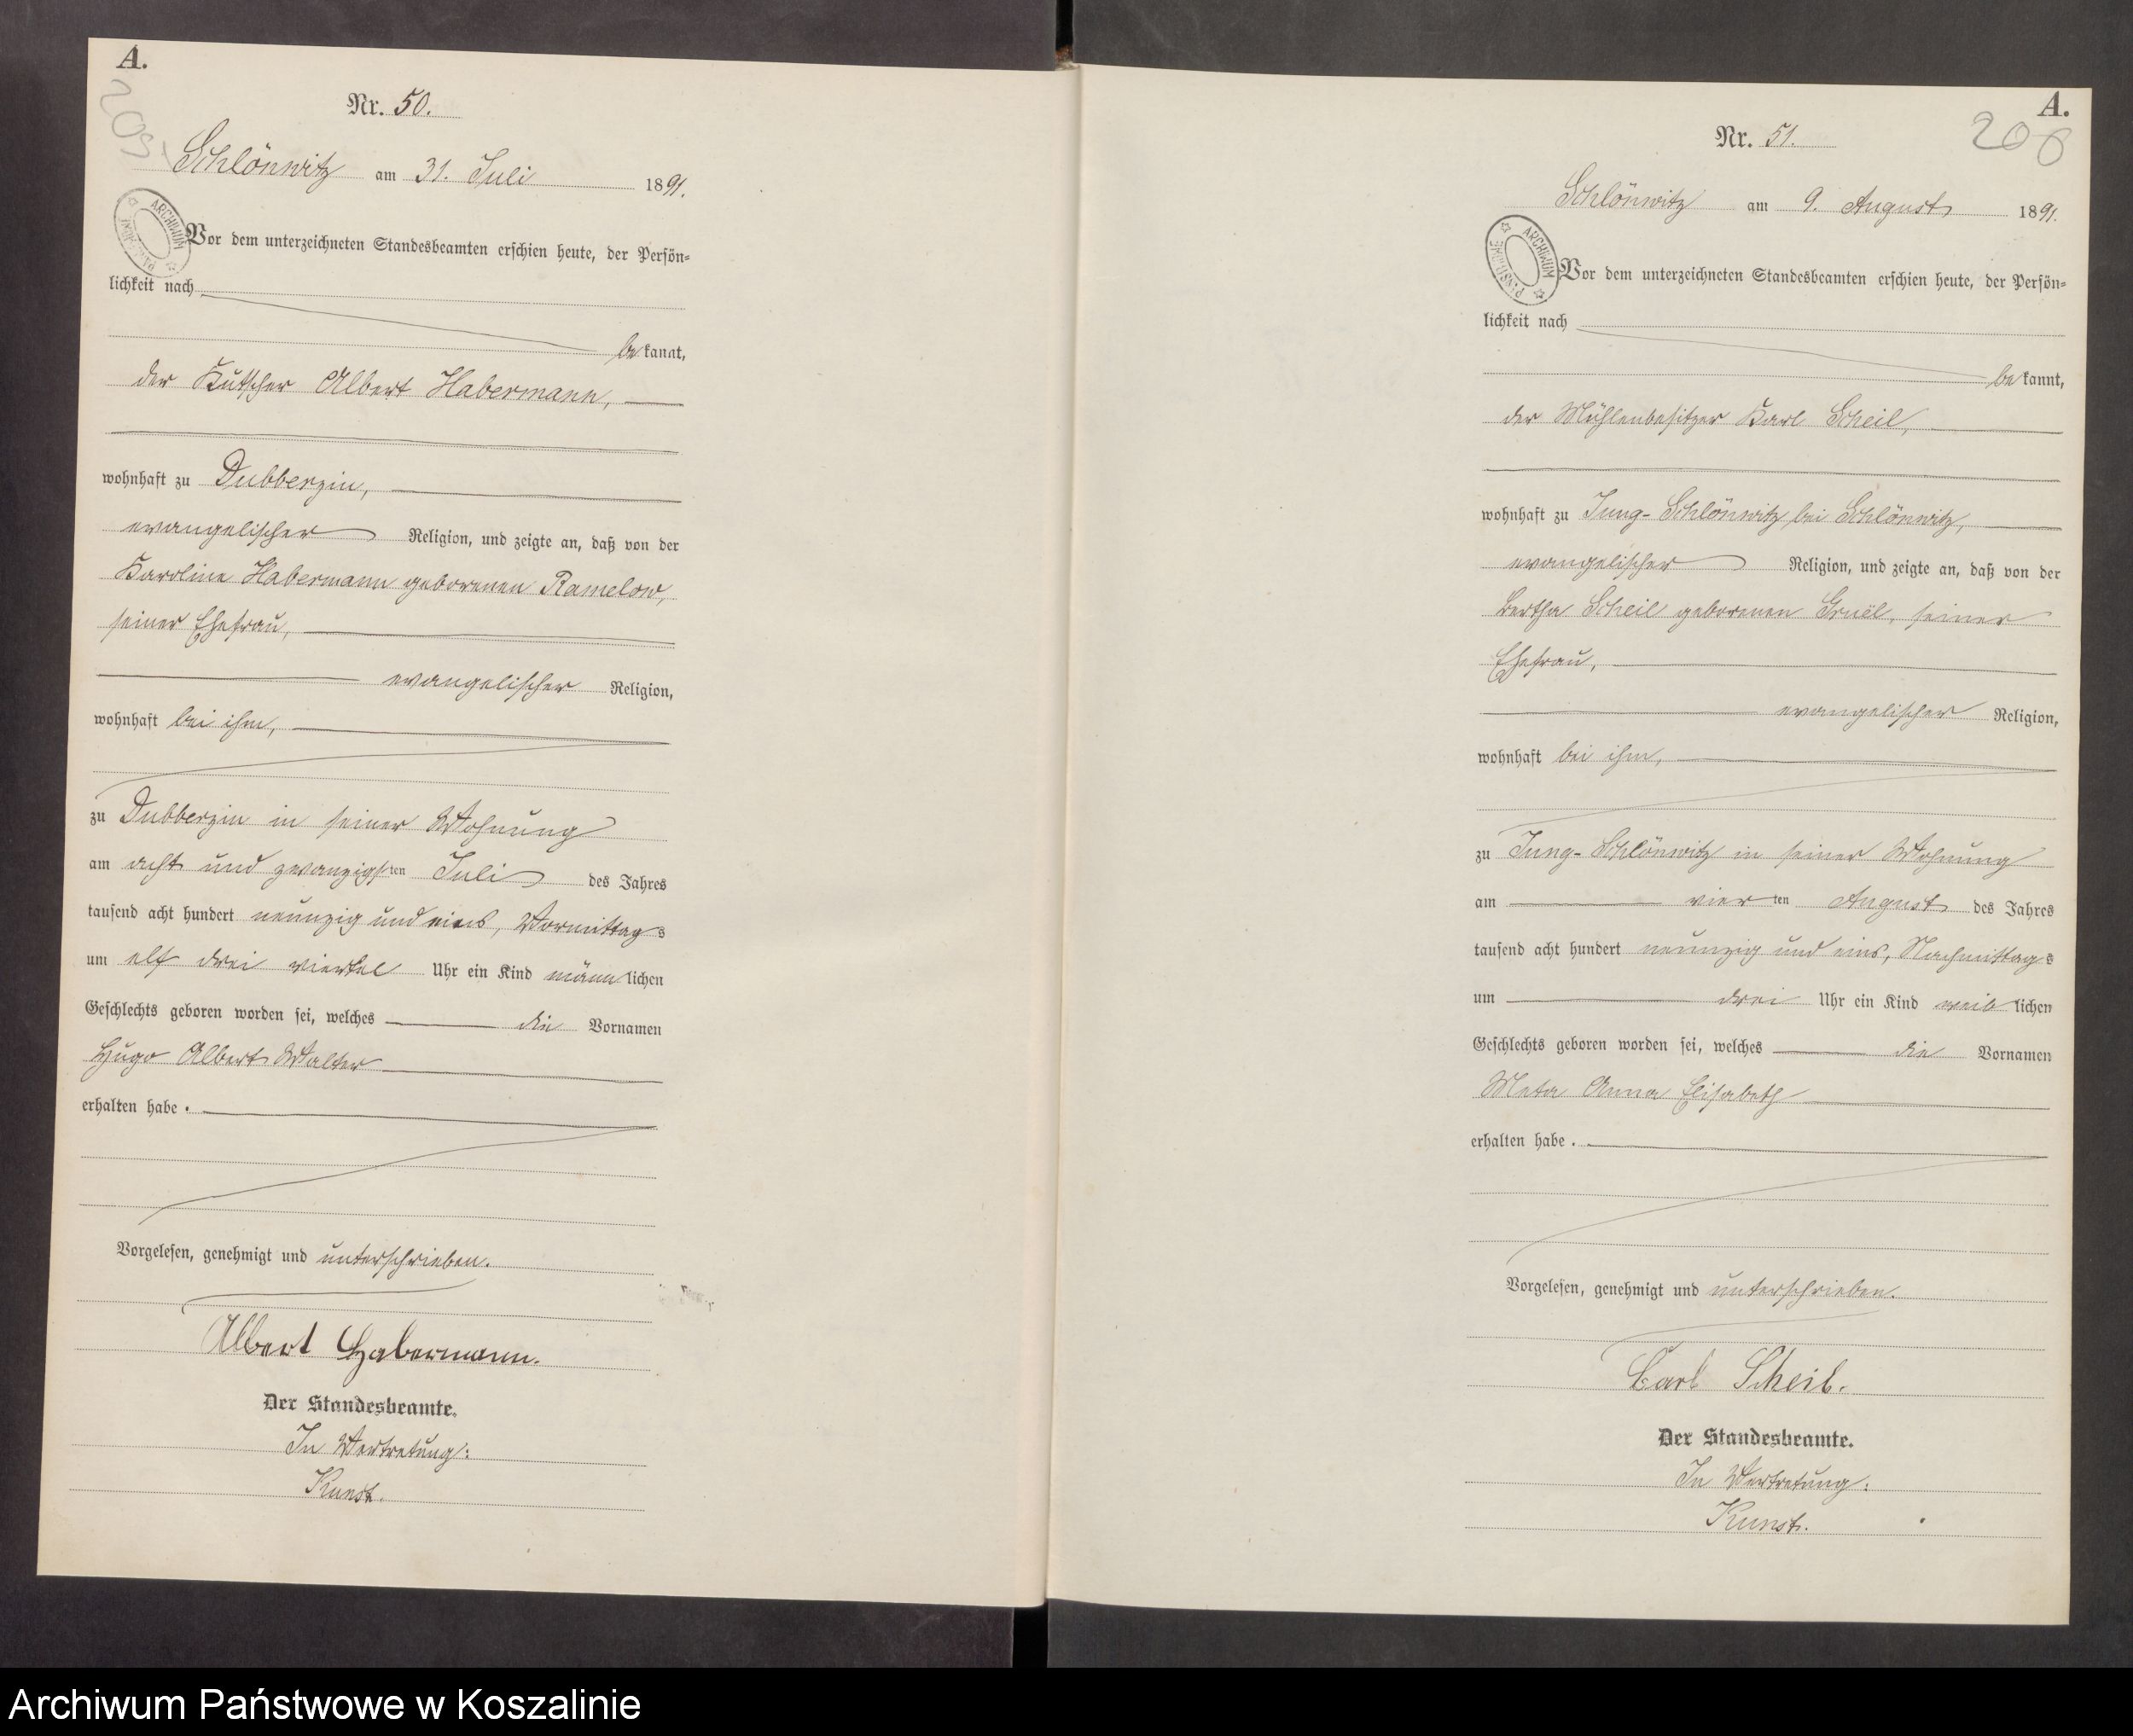 A.
205
Nr. 50.
Schlönwitz am 31. Juli 1891.
ARCHIWUM
Vor dem unterzeichneten Standesbeamten erschien heute, der Persön-
lichkeit nach
bekannt,
der Kutscher Albert Habermann,
wohnhaft zu Dubberzin,
evangelischer Religion, und zeigte an, daß von der
Karoline Habermann geborenen Ramelow,
seiner Ehefrau,
evangelischer Religion,
wohnhaft bei ihm,
zu Dubberzin in seiner Wohnung
am acht und zwanzigsten Juli des Jahres
tausend acht hundert neunzig und eins, Vormittags
um elf drei viertel Uhr ein Kind männlichen
Geschlechts geboren worden sei, welches die Vornamen
Hugo Albert Walter
erhalten habe.
Vorgelesen, genehmigt und unterschrieben.
Albert Habermann.
Der Standesbeamte.
In Vertretung:
Kunst.
A.
206
Nr. 51.
Schlönwitz am 9. August 1891.
ARCHIWUM
Vor dem unterzeichneten Standesbeamten erschien heute, der Persön-
lichkeit nach
bekannt,
der Mühlenbesitzer Karl Scheil,
wohnhaft zu Jung-Schlönwitz bei Schlönwitz,
evangelischer Religion, und zeigte an, daß von der
Bertha Scheil geborenen Gruël, seiner
Ehefrau,
evangelischer Religion,
wohnhaft bei ihm,
zu Jung-Schlönwitz in seiner Wohnung
am vierten August des Jahres
tausend acht hundert neunzig und eins, Nachmittags
um drei Uhr ein Kind weiblichen
Geschlechts geboren worden sei, welches die Vornamen
Meta Anna Elisabeth
erhalten habe.
Vorgelesen, genehmigt und unterschrieben.
Carl Scheil.
Der Standesbeamte.
In Vertretung:
Kunst.
Archiwum Państwowe w Koszalinie